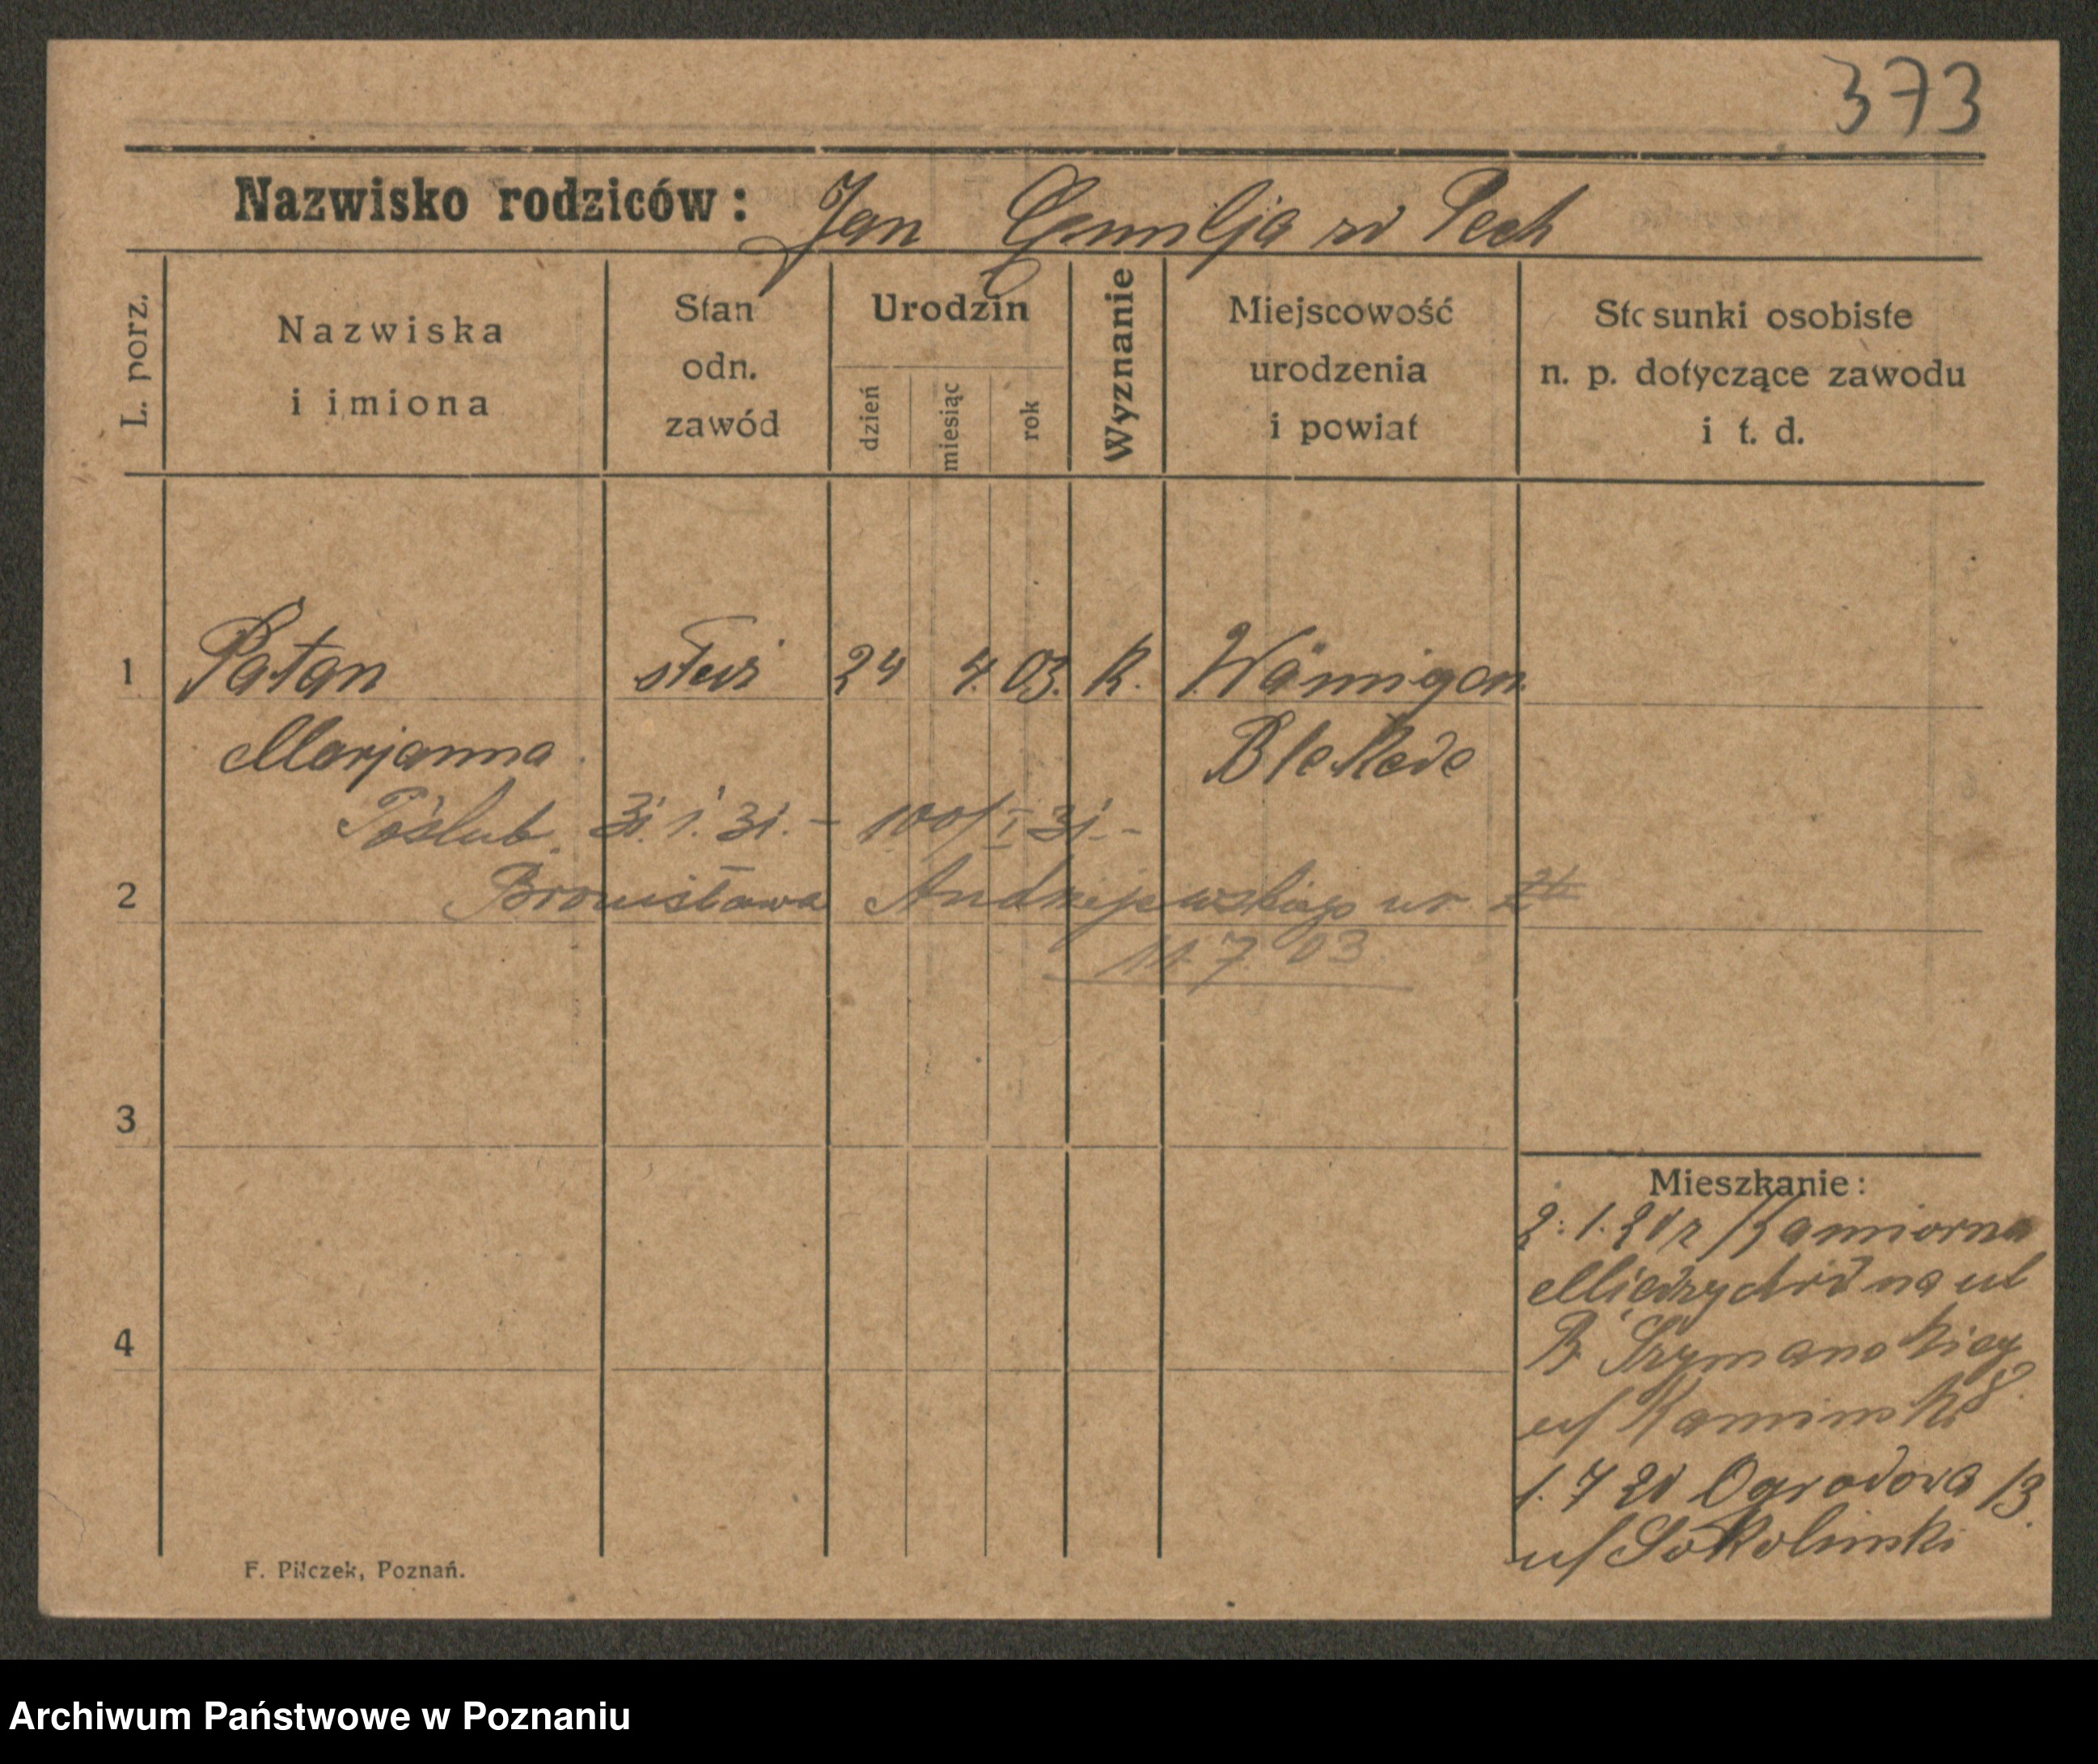 373
Nazwisko rodziców: Jan Emilja zd Pech
L. porz.
Nazwiska
i imiona
Stan
odn.
zawód
Urodzin
dzień
miesiąc
rok
Wyznanie
Miejscowość
urodzenia
i powiat
Stosunki osobiste
n. p. dotyczące zawodu
i t. d.
1 Patan 24 4. 03. K.
Marjanna Blekede
Poślub. 31. 1. 31. - 100/I 31. -
2 Bronisława Andrzejewskiego ur.
11. 7 03
3
4
Mieszkanie:
Międzychód na ul
B Szymanskieg
u/ Kaminski
1. 7 Ogrodowa 13.
u/ Sokolinski
F. Pilczek, Poznań.
Archiwum Państwowe w Poznaniu